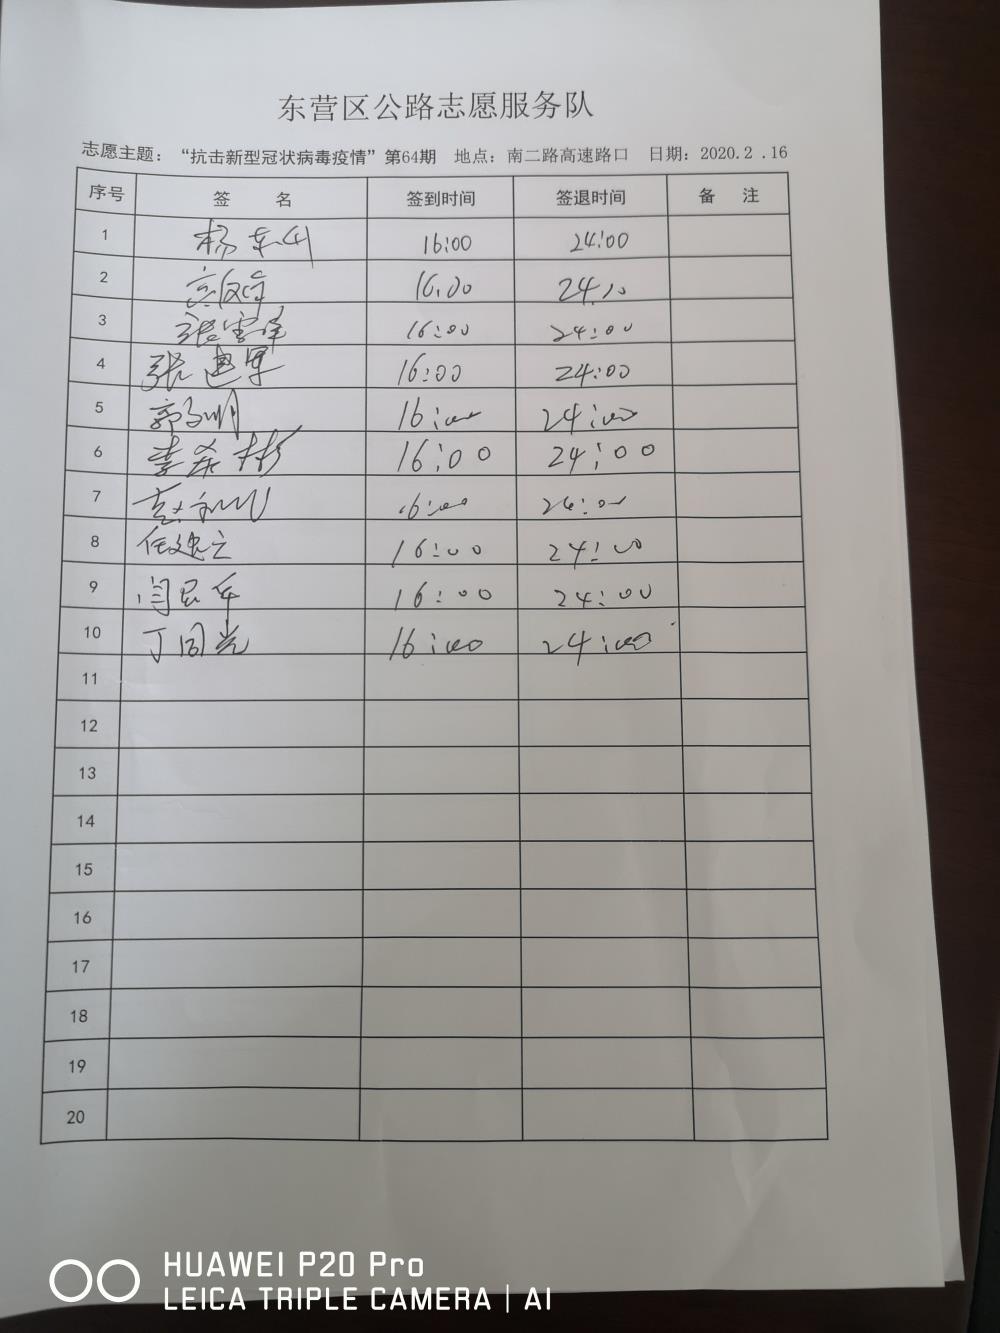 东营区公路志愿服务队
志愿主题：“抗击新型冠状病毒疫情”第64期 地点：南二路高速路口 日期：2020.2 .16
序号 签 名 签到时间 签退时间 备 注
1 16:00 24:00
2 16:00
3 16:00 24:00
4 张建军 16:00 24:00
5 16:00 24:00
6 李希彬 16:00 24:00
7 16:00 24:00
8 任建立 16:00 24:00
9 闫民军 16:00 24:00
10 丁同光 16:00 24:00
11
12
13
14
15
16
17
18
19
20
HUAWEI P20 Pro
LEICA TRIPLE CAMERA | AI